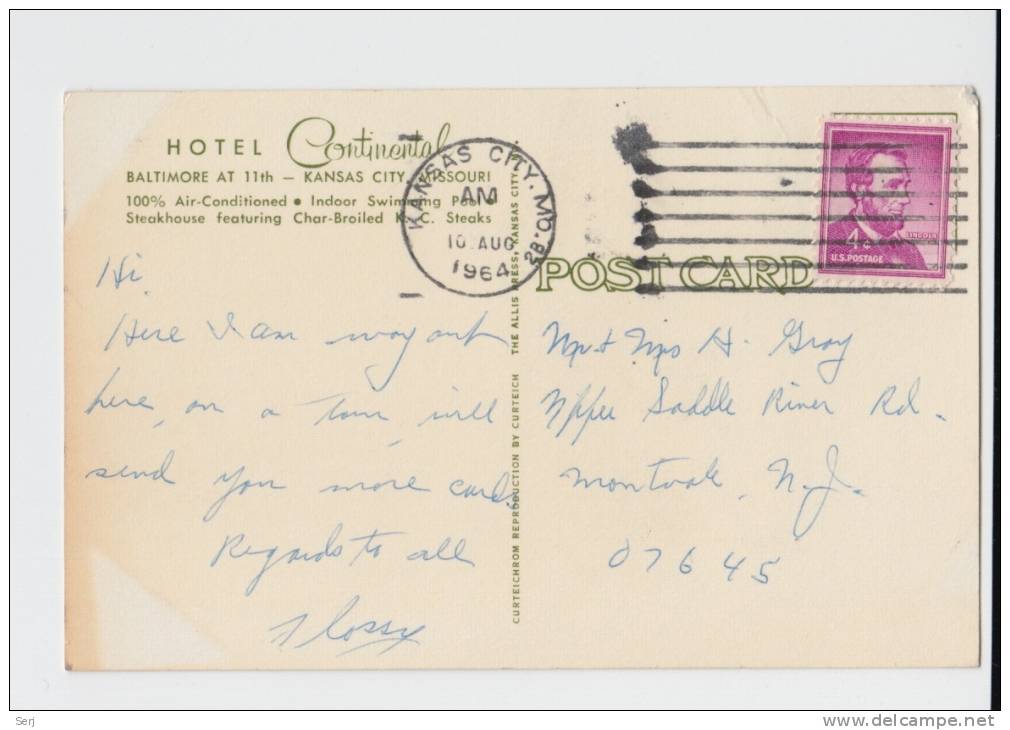 HOTEL Continental
BALTIMORE AT 11th — KANSAS CITY, MISSOURI
100% Air-Conditioned • Indoor Swimming Pool •
Steakhouse featuring Char-Broiled K. C. Steaks
KANSAS CITY, MO. 2B
AM
10 AUG
1964
4¢
LINCOLN
U.S. POSTAGE
POST CARD
CURTEICHROM REPRODUCTION BY CURTEICH THE ALLIS PRESS, KANSAS CITY,
Hi.
Here I am way out
here, on a tour, will
send you more cards,
Regards to all
Flossy
Mr + Mrs H. Gray
Upper Saddle River Rd.
Montvale, N.J.
07645
Serj
www.delcampe.net